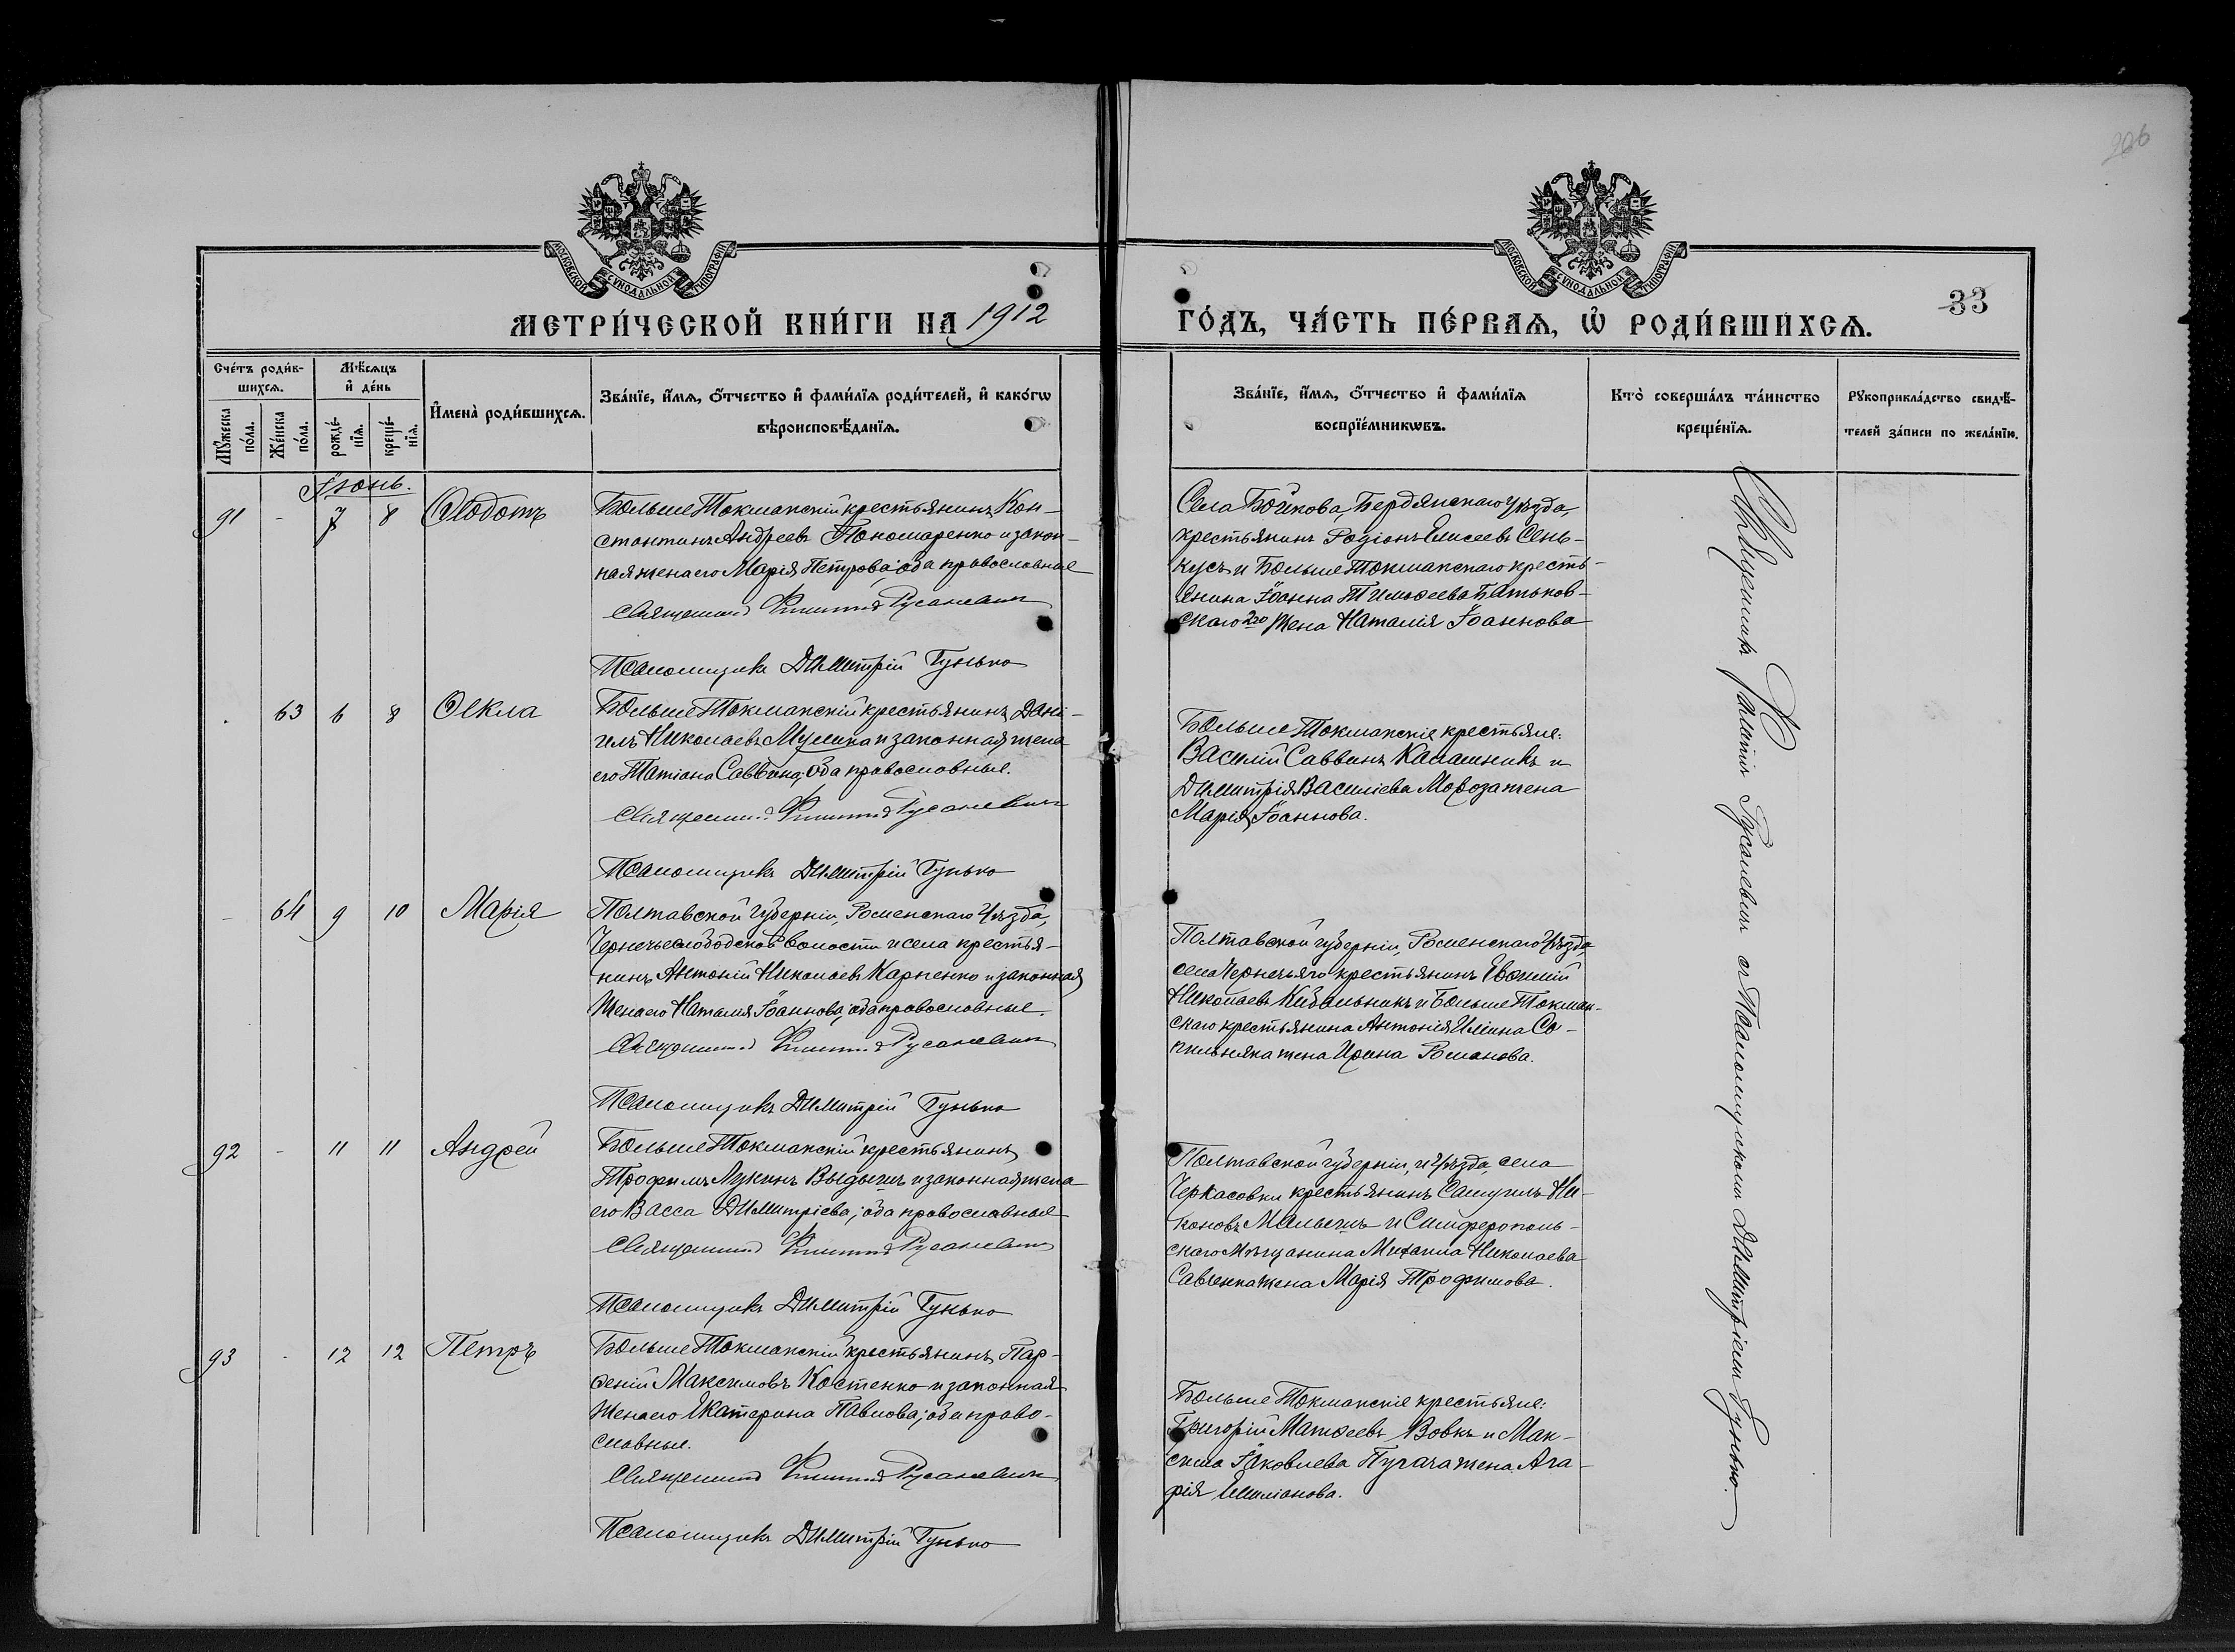 206
МОСКОВСКОЙ СѴНОДАЛЬНОЙ ТИПОГРАФІИ
МОСКОВСКОЙ СѴНОДАЛЬНОЙ ТИПОГРАФІИ
33
МЕТРИ́ЧЕСКОЙ КНИ́ГИ НА 1912
ГО́ДЪ, ЧА́СТЬ ПЕ́РВАѦ, Ѡ҆ РОДИ́ВШИХСѦ.
Сче́тъ роди́в-
шихсѧ.
Мꙋ́жеска
по́ла.
Же́нска
по́ла.
Мѣ́сѧцъ
и҆ де́нь
рожде́-
нїѧ.
креще́-
нїѧ.
И҆мена̀ роди́вшихсѧ.
Зва́нїе, и҆́мѧ, ѻ҆́тчество и҆ фами́лїѧ роди́телей, и҆ како́гѡ
вѣроисповѣ́данїѧ.
Зва́нїе, и҆́мѧ, ѻ҆́тчество и҆ фами́лїѧ
воспрїе́мникѡвъ.
Кто̀ соверша́лъ та́инство
креще́нїѧ.
Рꙋкоприкла́дство свидѣ́-
телей за́писи по жела́нїю.
Іюнь.
91 - 7 8 Ѳеодотъ
Больше Токмакскій крестьянинъ Кон-
стантинъ Андреевъ Пономаренко и закон-
ная жена его Марія Петрова; оба православные
Священникъ Филиппъ Русаневичъ
Псаломщикъ Димитрій Гунько
Села Бочкова, Бердянскаго уѣзда,
крестьянинъ Родіонъ Елисеевъ Сень-
кусъ и Больше Токмакскаго кресть-
янина Іоанна Тимофеева Батьков-
скаго 2го жена Наталія Іоаннова
63 6 8 Ѳекла
Больше Токмакскій крестьянинъ Дані-
илъ Николаевъ Мулика и законная жена
его Татіана Саввина; оба православные.
Священникъ Филиппъ Русаневичъ
Псаломщикъ Димитрій Гунько
Больше Токмакскіе крестьяне:
Василій Саввинъ Калашникъ и
Димитрія Василіева Мороза жена
Марія Іоаннова.
- 64 9 10 Марія
Полтавской губерніи, Роменскаго уѣзда,
Чернечеслободской волости и села крестья-
нинъ Антоній Николаевъ Карпенко и законная
жена его Наталія Іоаннова; оба православные.
Священникъ Филиппъ Русаневичъ
Псаломщикъ Димитрій Гунько
Полтавской губерніи, Роменскаго уѣзда,
села Чернечьяго крестьянинъ Евфимій
Николаевъ Кибальникъ и Больше Токмак-
скаго крестьянина Антонія Иліина Со-
пильняка жена Ирина Романова.
92 - 11 11 Андрей
Больше Токмакскій крестьянинъ
Трофимъ Лукинъ Выдышъ и законная жена
его Васса Димитріева; оба православные
Священникъ Филиппъ Русаневичъ
Псаломщикъ Димитрій Гунько
Полтавской губерніи, и уѣзда, села
Черкасовки крестьянинъ Самуилъ Ни-
коновъ Малышъ и Симферополь-
скаго мѣщанина Михаила Николаева
Савченка жена Марія Трофимова.
93 - 12 12 Петръ
Больше Токмакскій крестьянинъ Пар-
ѳеній Максимовъ Костенко и законная
жена его Екатерина Павлова; оба право-
славные.
Священникъ Филиппъ Русаневичъ
Псаломщикъ Димитрій Гунько
Больше Токмакскіе крестьяне:
Григорій Матѳеевъ Вовкъ и Мак-
сима Іаковлева Пугача жена Ага-
фія Емиліанова.
Священникъ Филиппъ Русаневичъ съ Псаломщикомъ Димитріемъ Гунько.